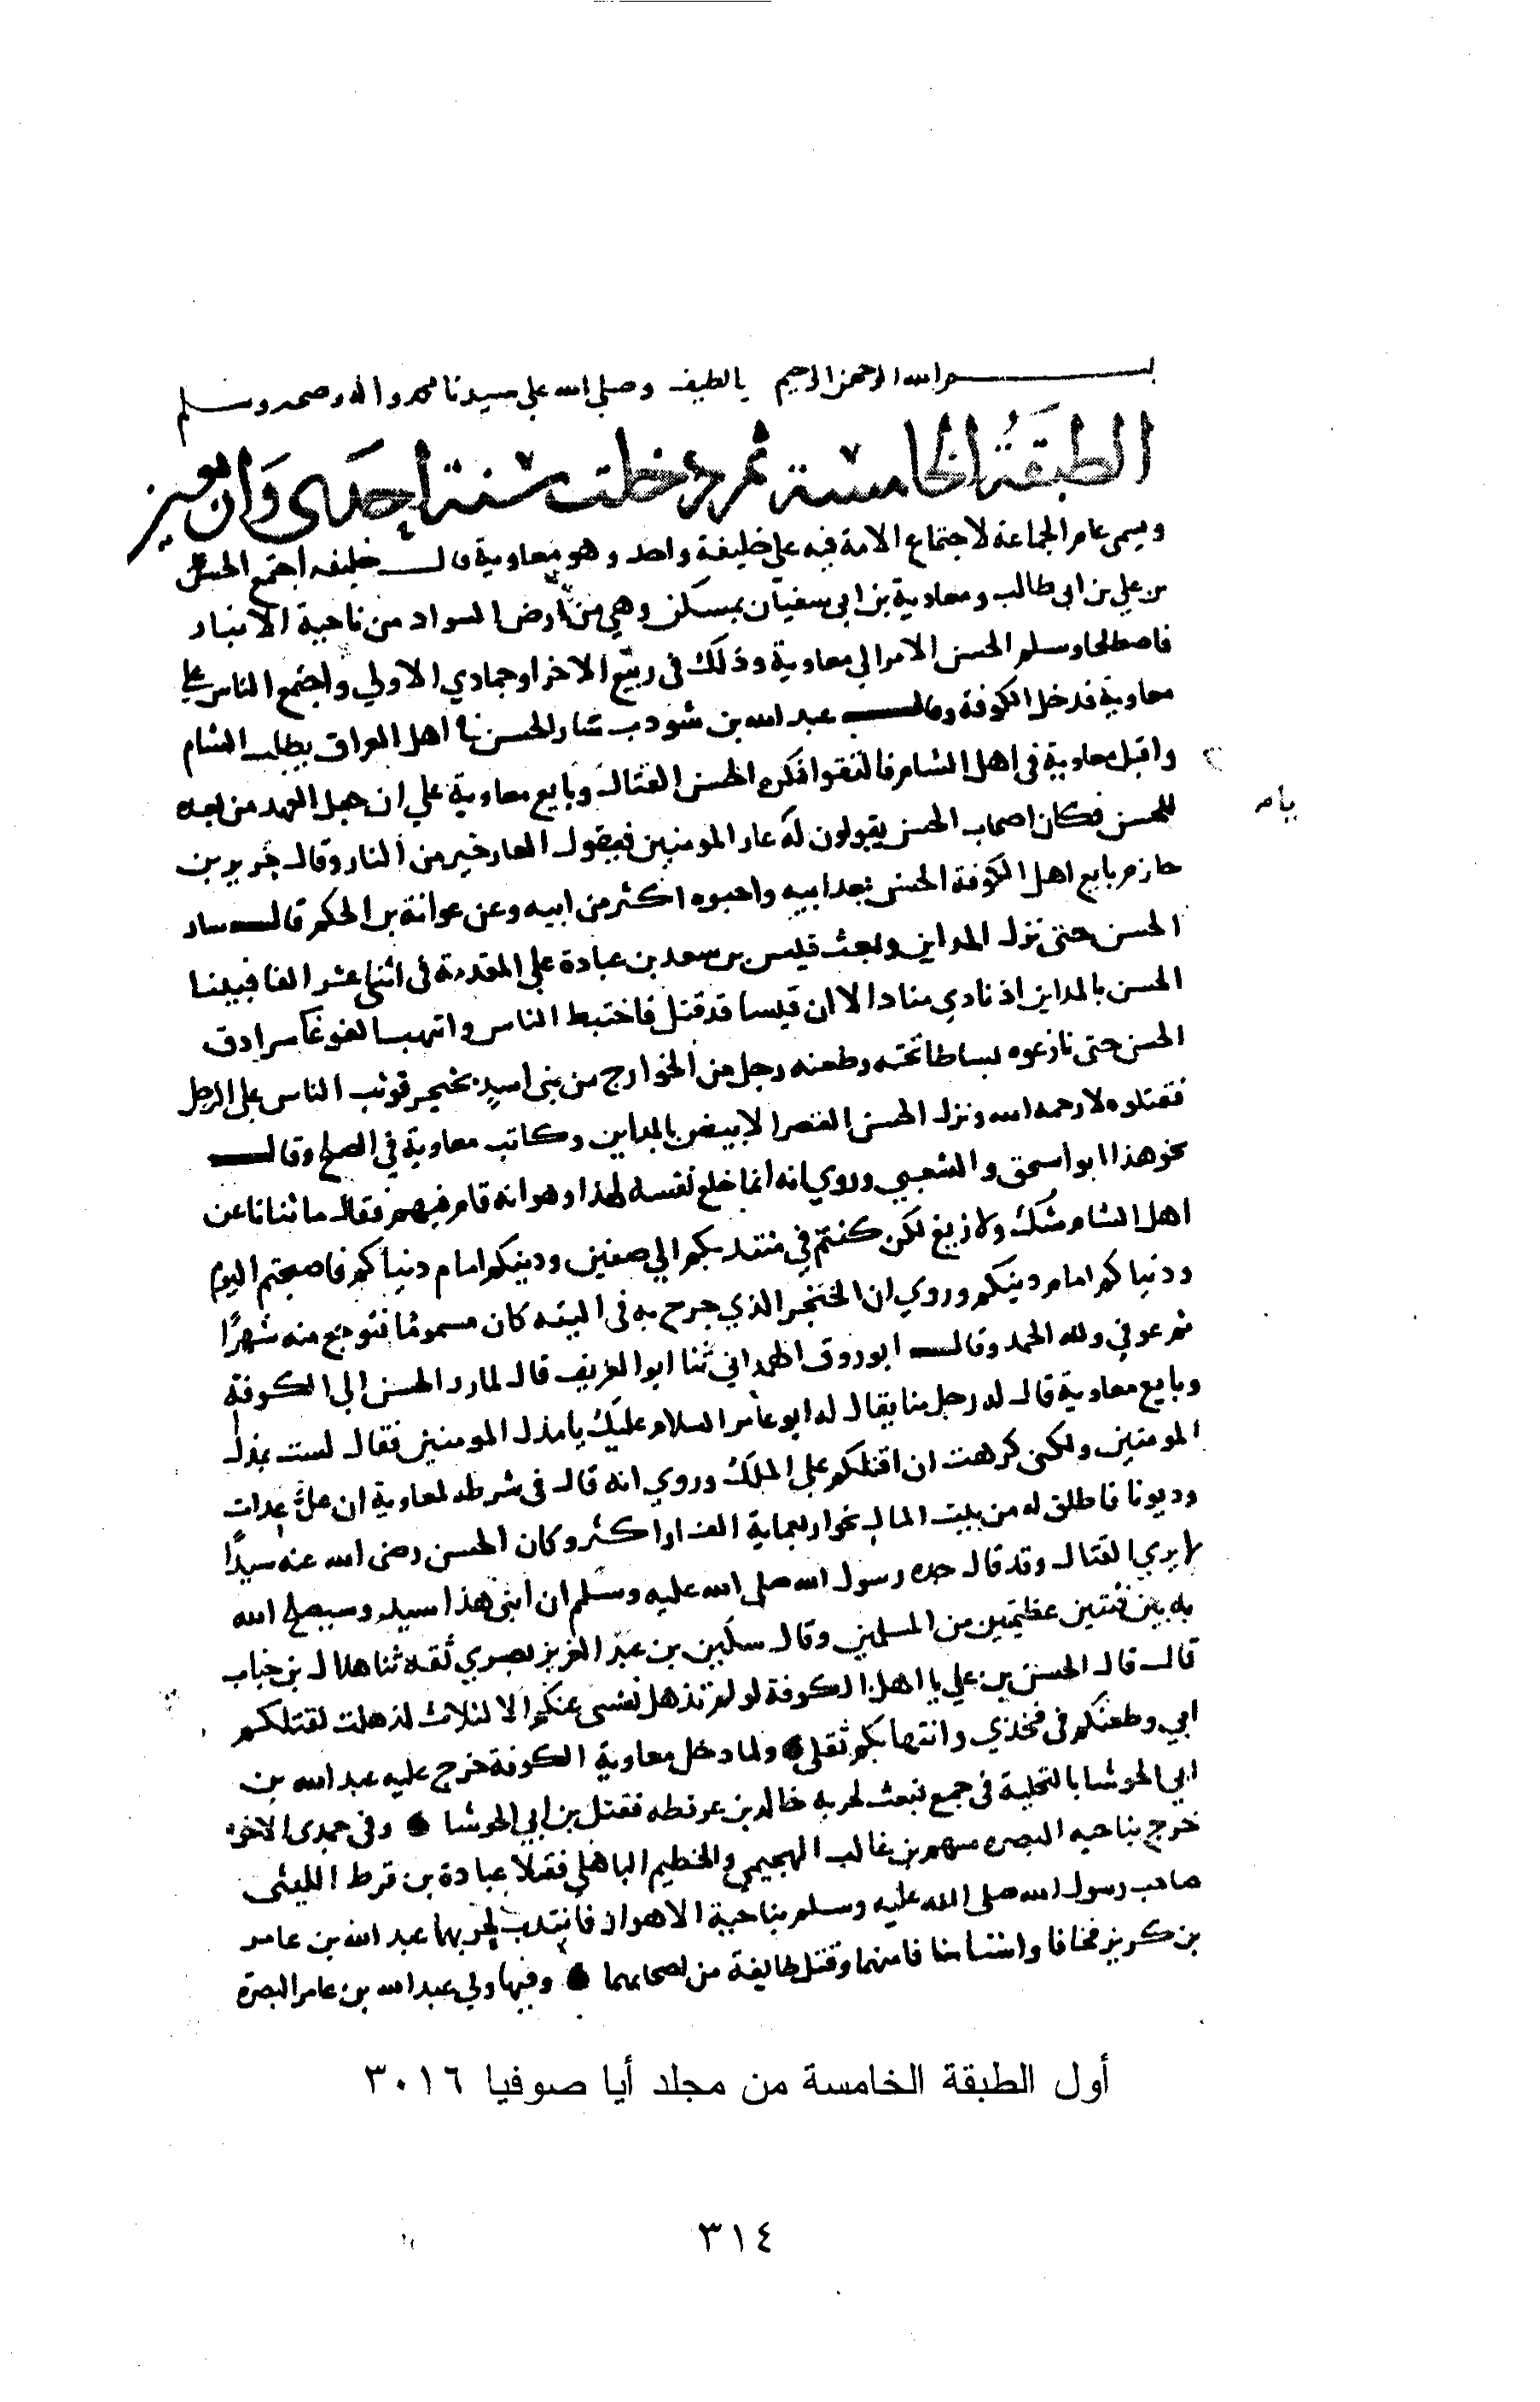 بسم الله الرحمن الرحيم يا لطيف وصلى الله على سيدنا محمد واله وصحبه وسلم
الطبقة الخامسة ثم دخلت سنة احدى واربعين
ويسمى عام الجماعة لاجتماع الامة فيه على خليفة واحد وهو معاوية قال خليفه اجتمع الحسن
بن علي بن ابي طالب ومعاوية بن ابي سفيان بمسكن وهي من ارض السواد من ناحية الانبار
فاصطلحا وسلم الحسن الامر الى معاوية وذلك في ربيع الاخر او جمادي الاولي واجتمع الناس على
معاوية فدخل الكوفة وقال عبد الله بن شودب سار الحسن في اهل العراق يطلب الشام
واقبل معاوية في اهل الشام فالتقوا فكره الحسن القتال وبايع معاوية علي ان جعل العهد من بعده
للحسن فكان اصحاب الحسن يقولون له عار المومنين فيقول العار خير من النار وقال جرير بن
يا
حازم بايع اهل الكوفة الحسن بعد ابيه واحبوه اكثر من ابيه وعن عوانة بن الحكم قال سار
الحسن حتى نزل المداين وبعث قيس بن سعد بن عبادة على المقدمة في اثني عشر الفا فبينا
الحسن بالمداين اذ نادي مناد الا ان قيسا قد قتل فاختبط الناس وانتهب الغوغا سرادق
الحسن حتى نازعوه بساطا تحته وطعنه رجل من الخوارج من بني اسد بخنجر فوثب الناس على الرجل
فقتلوه لا رحمه الله ونزل الحسن القصر الابيض بالمداين وكاتب معاوية في الصلح وقال
نحو هذا ابو اسحق والشعبي وروي انه انما خلع نفسه لهذا وهو انه قام فيهم فقال ما ثنانا عن
اهل الشام شك ولا زيغ لكن كنتم في منتدبكم الي صفين ودينكم امام دنياكم فاصبحتم اليوم
ودنياكم امام دينكم وروي ان الخنجر الذي جرح به في اليته كان مسموما فتوجع منه شهرًا
ثم عوفي ولله الحمد وقال ابو روق الهمداني ثنا ابو الغريف قال لما رد الحسن الى الكوفة
وبايع معاوية قال له رجل منا يقال له ابو عامر السلام عليك يا مذل المومنين فقال لست بمذل
المومنين ولكني كرهت ان اقتلكم على الملك وروي انه قال في شرطه لمعاوية ان عليّ عدات
وديونا فاطلق له من بيت المال نحو اربعماية الف او اكثر وكان الحسن رضي الله عنه سيدًا
لا يري القتال وقد قال جده رسول الله صلى الله عليه وسلم ان ابني هذا سيد وسيصلح الله
به بين فئتين عظيمتين من المسلمين وقال سكين بن عبد العزيز بصري ثقه ثنا هلال بن خباب
قال قال الحسن بن علي يا اهل الكوفة لو لم تذهل نفسي عنكم الا لثلاث لذهلت لقتلكم
ابي وطعنكم في فخذي وانتهابكم ثقلي ولما دخل معاوية الكوفة خرج عليه عبد الله بن
ابي الحوشا بالنخيلة في جمع فبعث لحربه خالد بن عرفطه فقتل بن ابي الحوشا وفي جمدى الاخره
خرج بناحيه البصره سهم بن غالب الهجيمي والخطيم الباهلي فقتلا عبادة بن قرط الليثي
صاحب رسول الله صلى الله عليه وسلم بناحية الاهواز فانتدب لحربهما عبد الله بن عامر
بن كريز فخافا واستامنا فامنهما وقتل طايفة من اصحابهما وفيها ولي عبد الله بن عامر البصرة
أول الطبقة الخامسة من مجلد أيا صوفيا ٣٠١٦
٣١٤